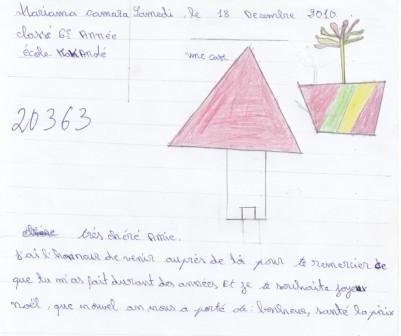 Mariama camara Samedi, le 18 Decembre 2010
classé 6e Année
école Kakandé
une case
20363
très chéré Amie.
J'ai l'honneur de venir auprès de toi pour te remercier de
que tu m'as fait durant des années Et je te souhaite joyeux
noël, que nouvel an nous a porté de: bonheur, santé la paix